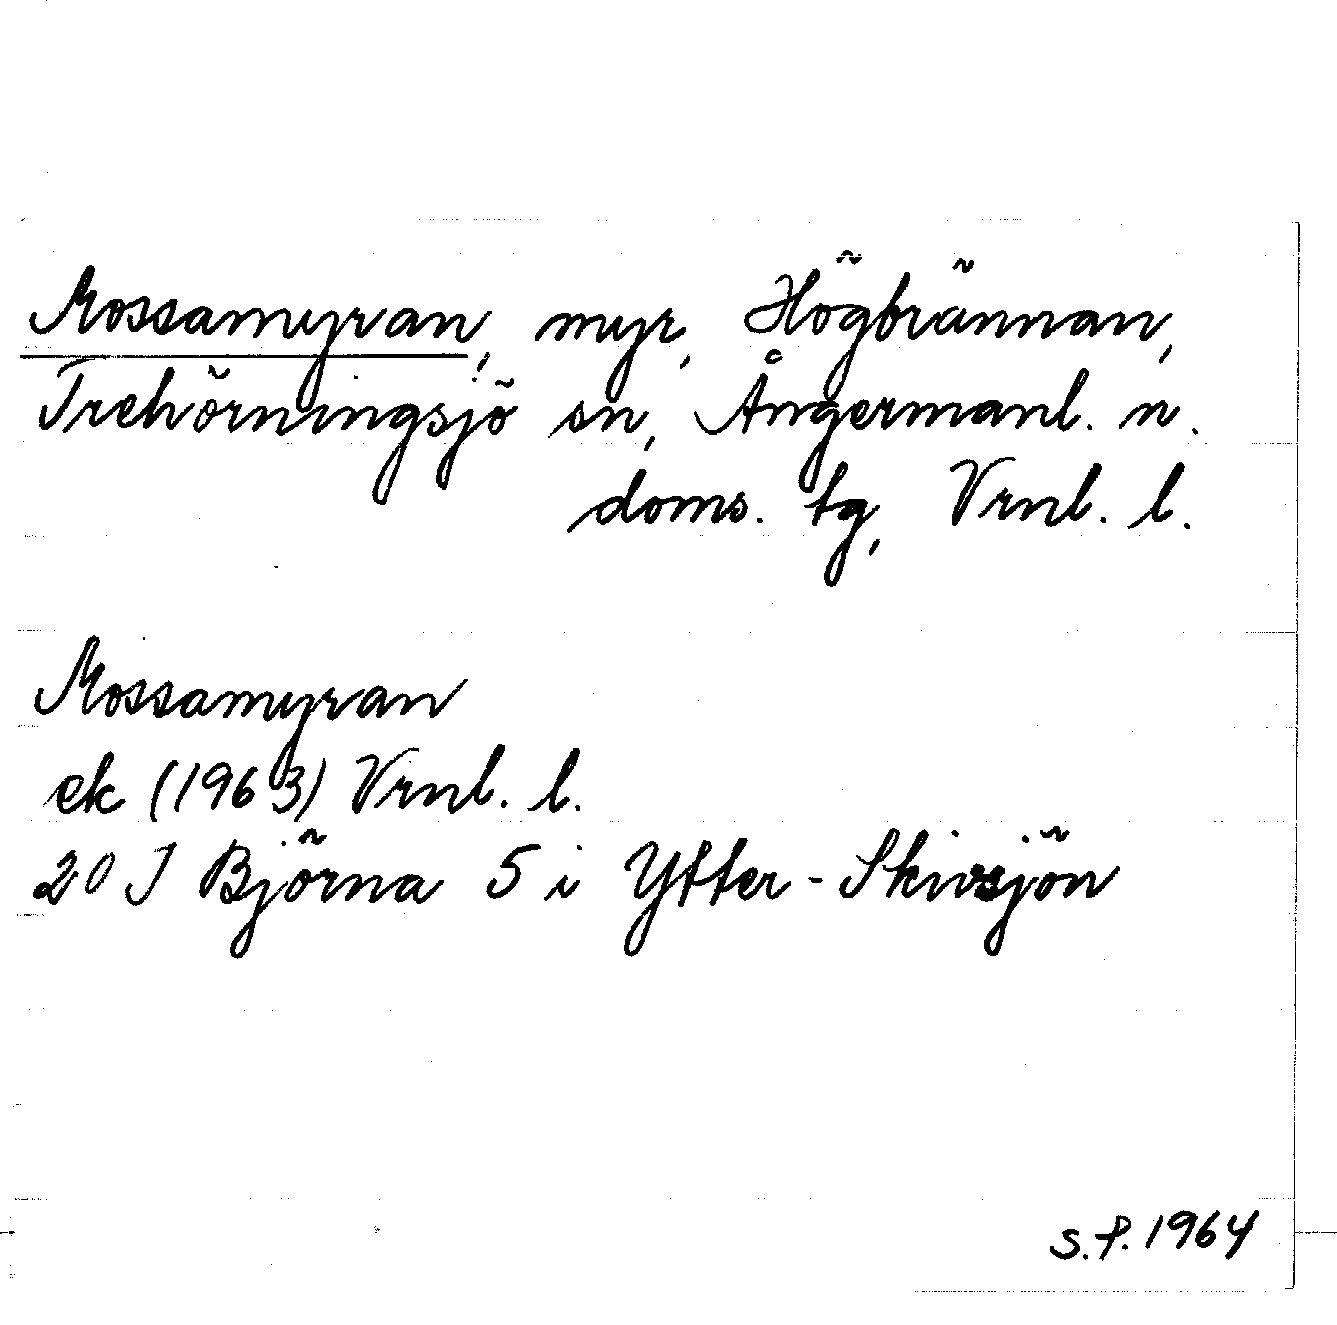 Mossamyran, myr, Högbrännan,
Trehörningsjö sn, Ångermanl. n.
doms. tg, Vrnl. l.
Mossamyran
ek (1963) Vrnl. l.
20 J Björna 5 i Ytter-Skivsjön
S.P. 1964